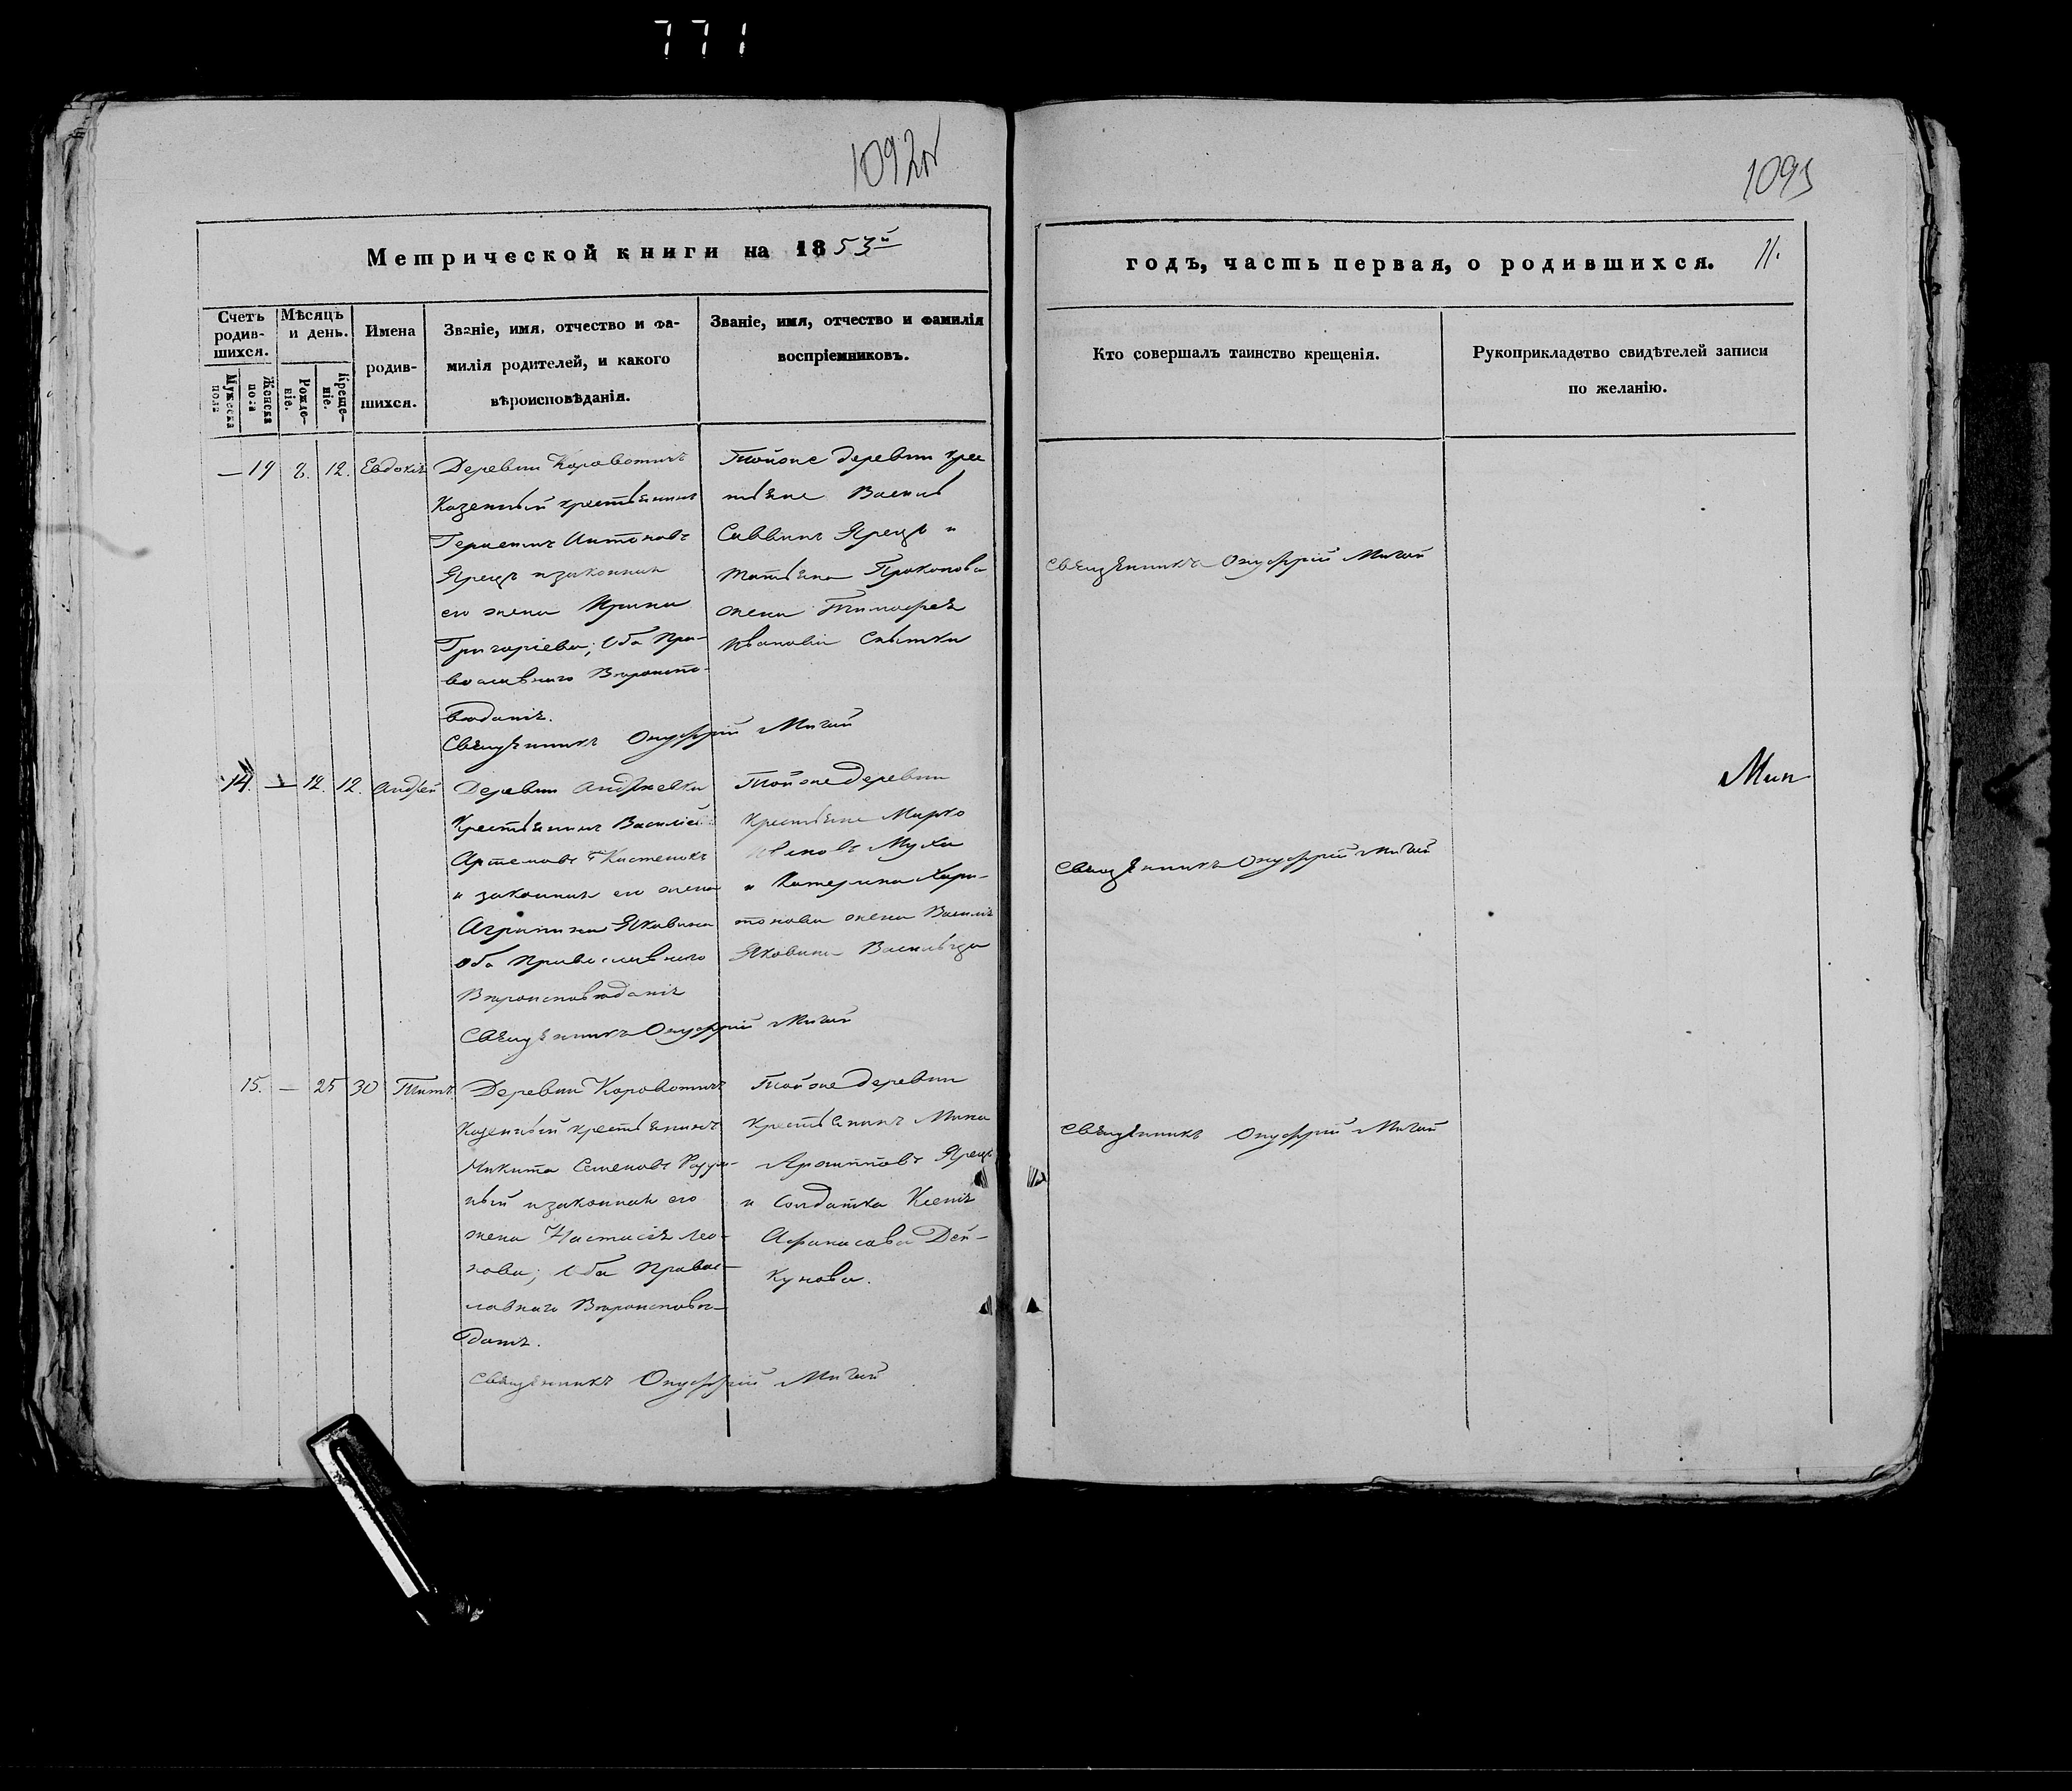 771
1092об
1093
Метрической книги на 1853й
годъ, часть первая, о родившихся. 11.
Счетъ родив-шихся.
Мѣсяцъ и день.
Имена родив-шихся.
Званіе, имя, отчество и фа-
милія родителей, и какого
вѣроисповѣданія.
Званіе, имя, отчество и фамилія
воспріемниковъ.
Мужеска пола
Женска пола
Рожде-ніе.
Креще-ніе.
Кто совершалъ таинство крещенія.
Рукоприкладство свидѣтелей записи
по желанію.
— 19 8. 12. Евдокія
Деревни Коровотичъ
Казенный крестьянинъ
Антоновъ
Ярецъ и законная
его жена Ирина
Григоріева; Оба Пра-
вославнаго Вѣроиспо-
вѣданія.
Священникъ Онуфрій Мигай
Тойже деревни крес
тьяне Василь
Саввинъ Ярецъ и
Татьяна Прокопова
жена Тимофея
Иванова
Священникъ Онуфрій Мигай
14. — 12. 12. Андрей
Деревни Андреевки
Крестьянинъ Василій
Артемовъ
и законная его жена
Агрипина Яковина
Оба Православнаго
Вѣроисповѣданія
Священникъ Онуфрій Мигай
Тойже деревни
Крестьяне Марко
Ивановъ Муха
и Катерина Хари-
тонова жена Василія
Яковина
Священникъ Онуфрій Мигай
15. — 25 30 Титъ.
Деревни Коровотичъ
Казенный крестьянинъ
Микита Семеновъ
ный и законная его
жена Настасія Лео-
нова; Оба Правос-
лавнаго Вѣроисповѣ-
данія.
Священникъ Онуфрій Мигай
Тойже деревни
Крестьянинъ Мина
Ярецъ
и Солдатка Ксенія
Афанасова Дей-
кунова.
Священникъ Онуфрій Мигай